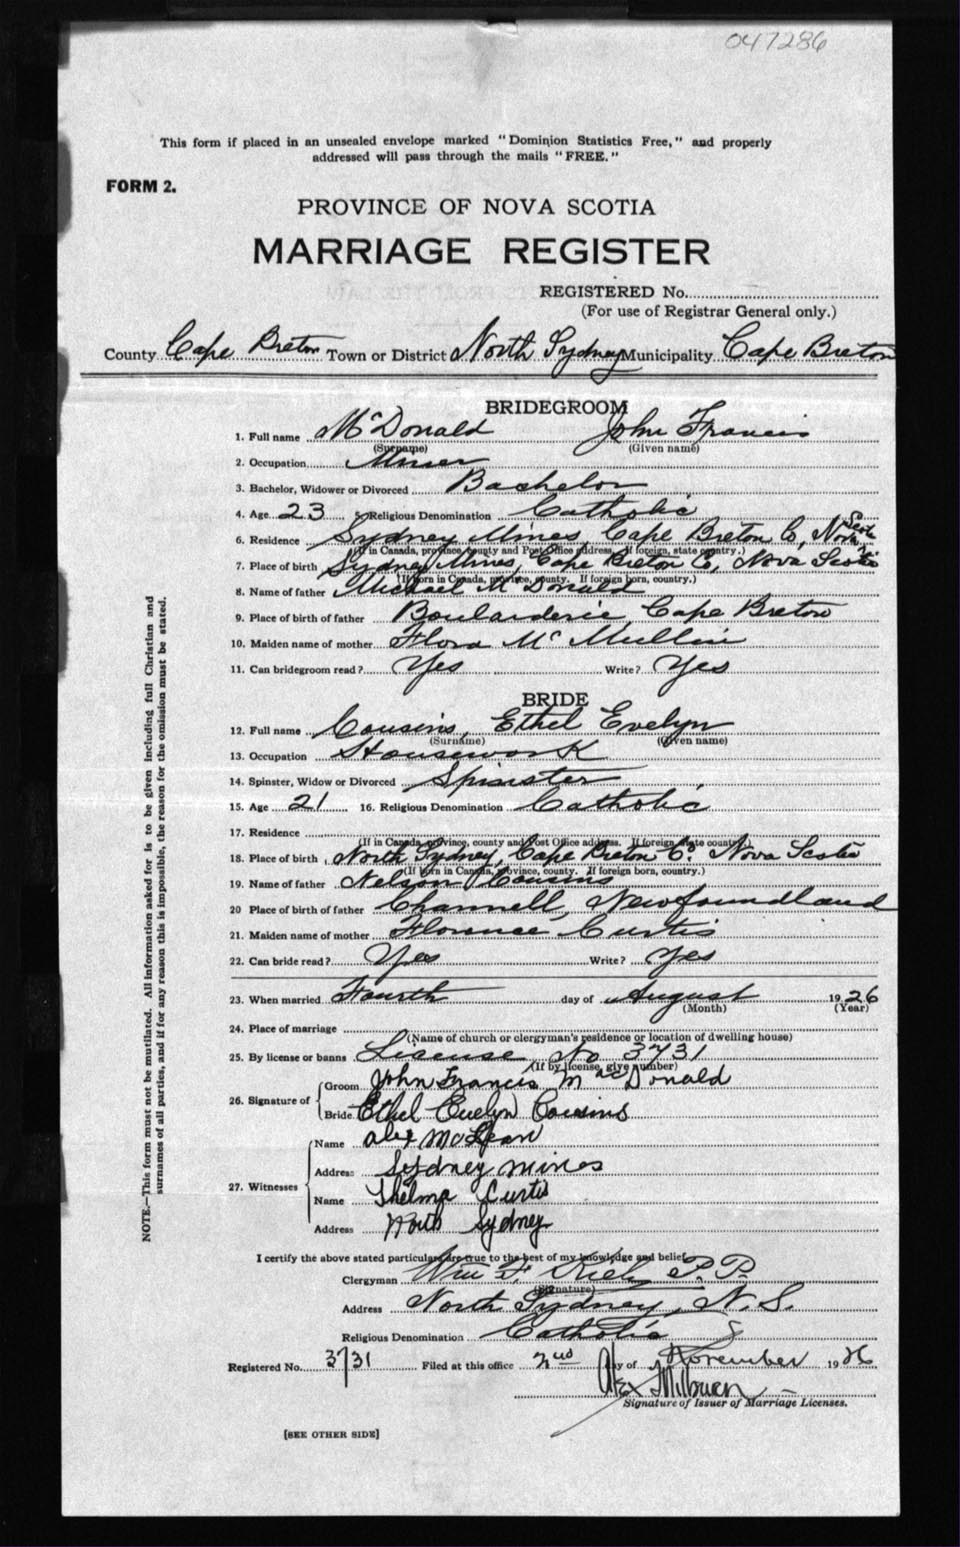 047286
This form if placed in an unsealed envelope marked "Dominion Statistics Free," and properly
addressed will pass through the mails "FREE."
FORM 2.
PROVINCE OF NOVA SCOTIA
MARRIAGE REGISTER
REGISTERED No.
(For use of Registrar General only.)
County Cape Breton Town or District North Sydney Municipality Cape Breton
BRIDEGROOM
1. Full name McDonald John Francis
(Surname) (Given name)
2. Occupation Miner
3. Bachelor, Widower or Divorced Bachelor
4. Age 23 5. Religious Denomination Catholic
6. Residence Sydney Mines, Cape Breton Co, Nova Scotia
(If in Canada, province, county and Post Office address. If foreign, state country.)
7. Place of birth Sydney Mines, Cape Breton Co, Nova Scotia
(If born in Canada, province, county. If foreign born, country.)
8. Name of father Michael McDonald
9. Place of birth of father Boularderie, Cape Breton
10. Maiden name of mother Flora McMullin
11. Can bridegroom read? Yes Write? Yes
BRIDE
12. Full name Cousins, Ethel Evelyn
(Surname) (Given name)
13. Occupation Housework
14. Spinster, Widow or Divorced Spinster
15. Age 21 16. Religious Denomination Catholic
17. Residence
(If in Canada, province, county and Post Office address. If foreign, state country.)
18. Place of birth North Sydney, Cape Breton Co. Nova Scotia
(If born in Canada, province, county. If foreign born, country.)
19. Name of father Nelson Cousins
20 Place of birth of father Channell, Newfoundland
21. Maiden name of mother Florence Curtis
22. Can bride read? Yes Write? Yes
23. When married Fourth day of August 1926
(Month) (Year)
24. Place of marriage
(Name of church or clergyman's residence or location of dwelling house)
25. By license or banns License No 3731
(If by license, give number)
26. Signature of Groom John Francis MacDonald
Bride Ethel Evelyn Cousins
27. Witnesses Name Alex McLean
Address Sydney Mines
Name Thelma Curtis
Address North Sydney
I certify the above stated particulars are true to the best of my knowledge and belief.
Clergyman Wm F. Kiely P.P.
(Signature)
Address North Sydney, N.S.
Religious Denomination Catholic
Registered No. 3731 Filed at this office 2nd day of November 1926
Alex Milburn
Signature of Issuer of Marriage Licenses.
[SEE OTHER SIDE]
NOTE.—This form must not be mutilated. All information asked for is to be given including full Christian and
surnames of all parties, and if for any reason this is impossible, the reason for the omission must be stated.